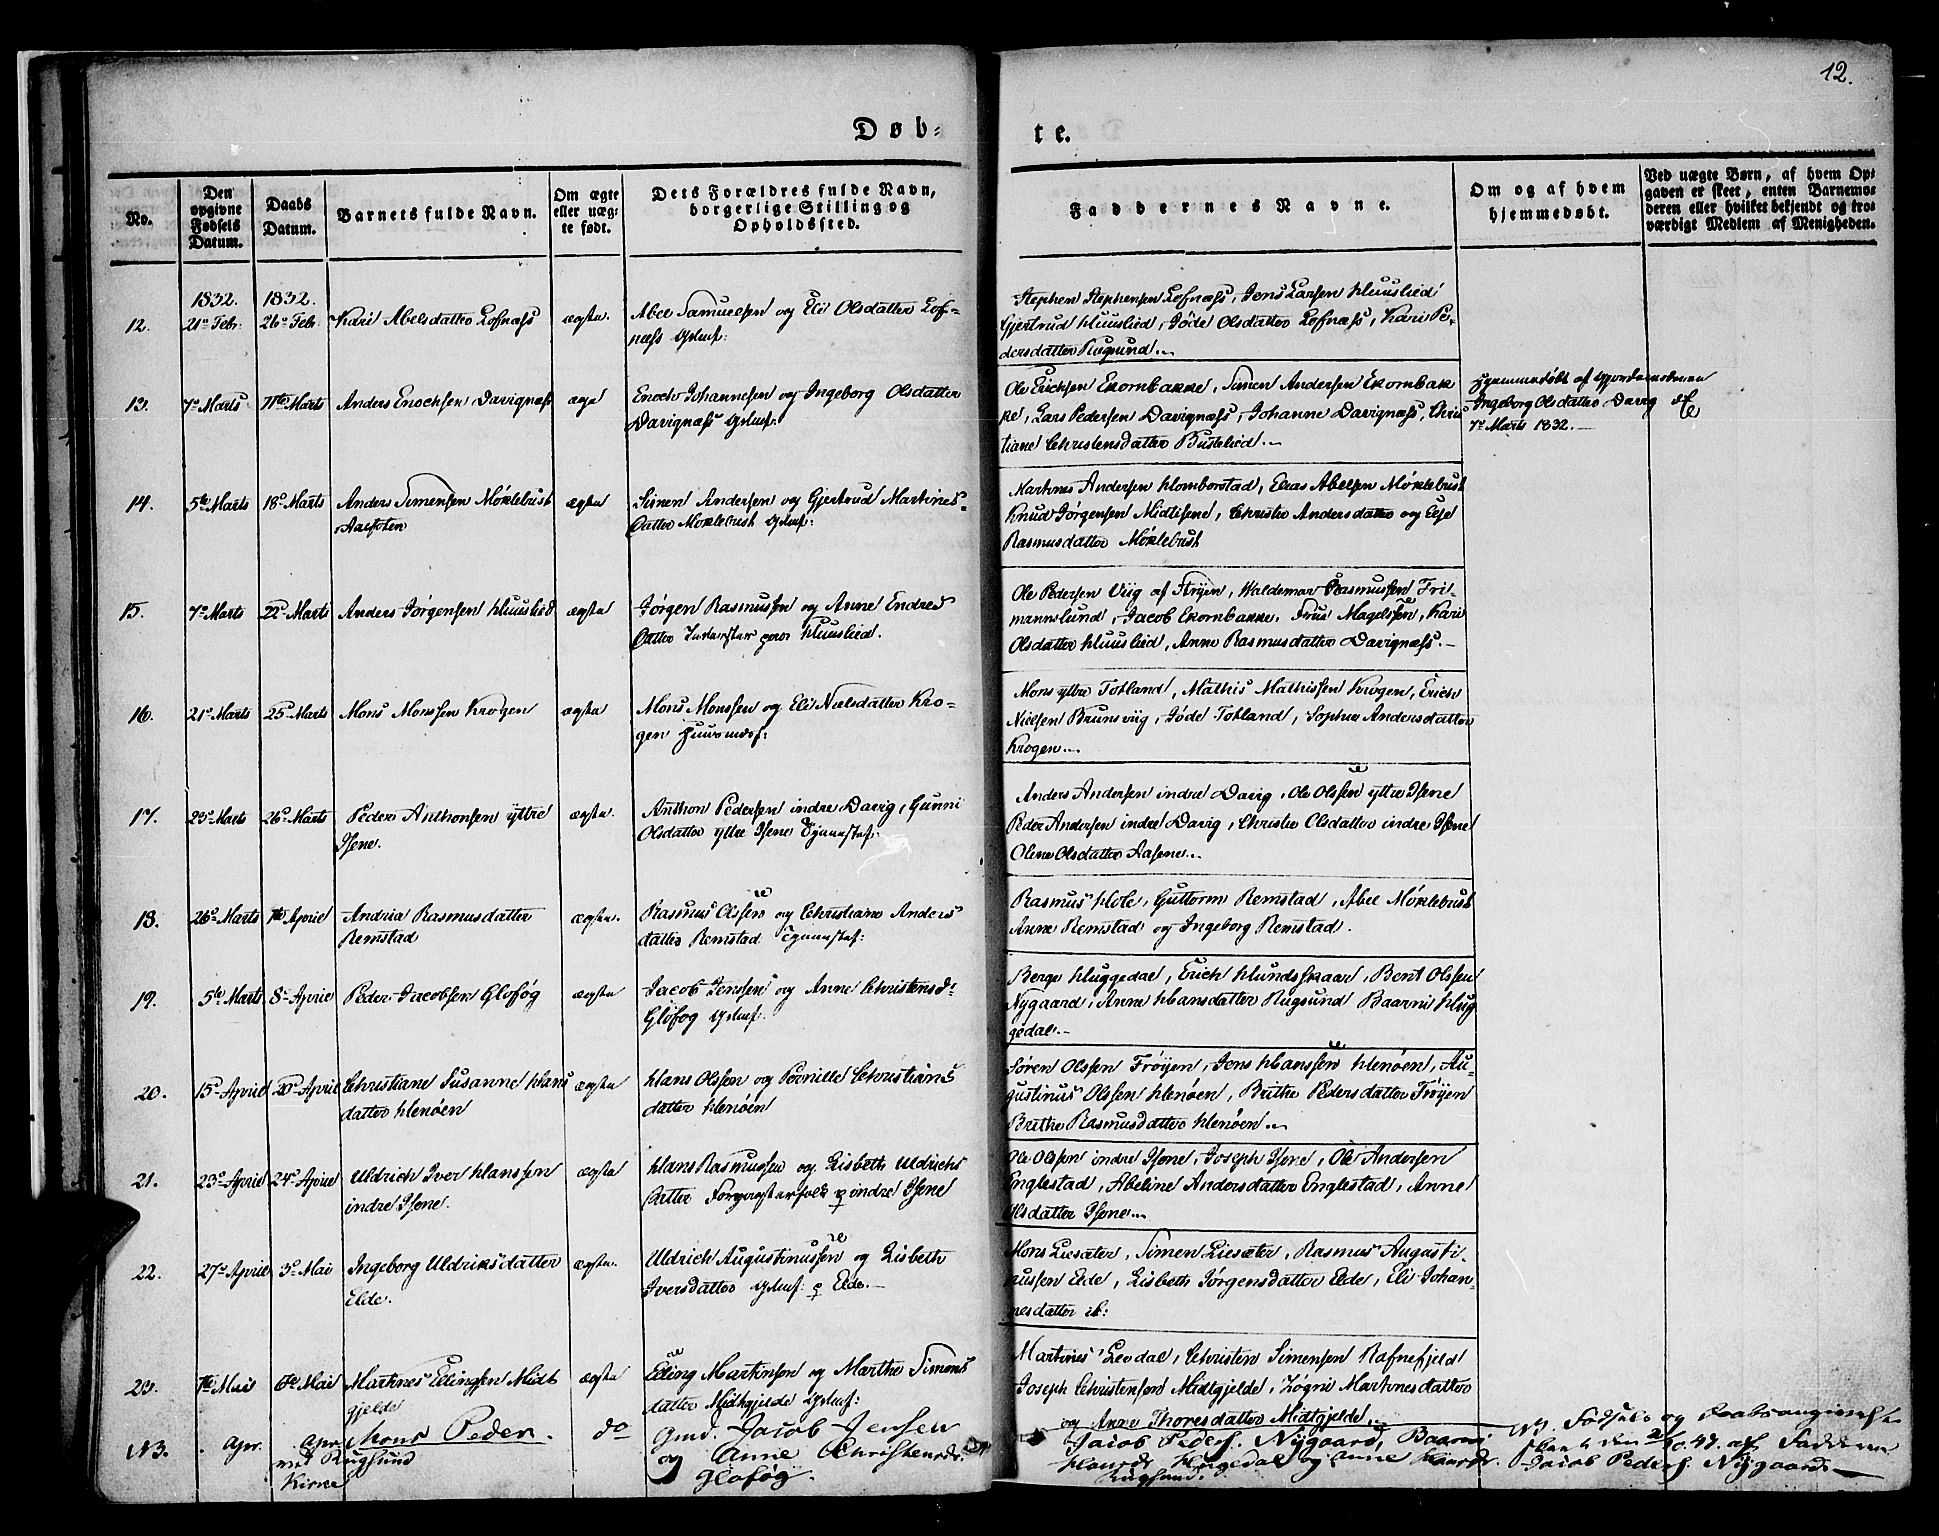 12.
Døb-
te.
No.
Den opgivne Fødsels Datum.
Daabs Datum.
Barnets fulde Navn.
Om ægte eller uægte født.
Dets Forældres fulde Navn, borgerlige Stilling og Opholdssted.
Faddernes Navne.
Om og af hvem hjemmedøbt.
Ved uægte Børn, af hvem Opgaven er skeet, enten Barnemoderen eller hvilket bekjendt og troværdigt Medlem af Menigheden.
1832. 1832.
12. 21de Febr: 26de Feb: Kari Abelsdatter Lofnæss ægte. Abel Samuelsen og Eli Olsdatter Lof-
næss Gdmf:
Stephen Stephensen Lofnæss, Jens Larsen Huuslied
Gjertrud Huuslied, Jøde Olsdatter Lofnæss, Kari Pe-
dersdatter Rugsund.
13. 7de Marts 11te Marts Anders Enochsen Davignæss ægte Enoch Johannesen og Ingeborg Olsdatter
Davignæss Gdmf:
Ole Erichsen Ekornbakke, Simen Andersen Ekornbak
ke, Lars Pedersen Davignæss, Johanne Davignæss, Chris
tiane Christensdatter Bustelied.
Hjemmedøbt af Gjordemoderen
Ingeborg Olsdatter Davig
7de Marts 1832.
14. 5te Marts 18de Marts Anders Simensen Møklebust
Aalfoten
ægte Simen Andersen og Gjertrud Martines-
datter Møklebust Gdmf:
Martines Andersen Homborstad, Elias Abelsen Møklebust
Knud Jørgensen Midtisene, Christie Andersdatter og Else
Rasmusdatter Møklebust
15. 7de Marts 22de Marts Anders Jørgensen Huuslied ægte Jørgen Rasmussen og Anne Endres
datter Inderster paa Huuslied.
Ole Pedersen Viig af Stryen, Waldemar Rasmussen Fri-
mannslund, Jacob Ekornbakke, Frue Magelssen, Kari
Olsdatter Huuslied, Anne Rasmusdatter Davignæss.
16. 21de Marts 25de Marts Mons Monssen Krogen ægte Mons Monssen og Eli Nielsdatter Kro-
gen Huusmdsf:
Mons yttre Totland, Mathis Mathissen Krogen, Erich
Nielsen Brunsviig, Jøde Totland, Sophie Andersdatter
Krogen.
17. 23de Marts 26de Marts Peder Anthonsen yttre
Isene.
ægte. Anthon Pedersen indre Davig, Gunni
Olsdatter yttre Isene Tjenestef:
Anders Andersen indre Davig, Ole Olssen yttre Isene
Peder Andersen indre Davig, Christie Olsdatter indre Isene
Oline Olsdatter Aasene.
18. 26de Marts 1te April Andria Rasmusdatter
Remstad
ægte. Rasmus Olssen og Christiane Anders
datter Remstad Tjenestef:
Rasmus Hole, Guttorm Remstad, Abel Møklebust
Anne Remstad og Ingeborg Remstad.
19. 5te Marts 8de April Peder Jacobsen Gloføg ægte Jacob Jenssen og Anne Christensd:
Gloføg Gdmf:
Berge Huggedal, Erich Hundskaar, Bent Olssen
Nygaard, Anne Hansdatter Rugsund Baarni Hug
gedal.
20. 15de April 20de April Christiane Susanne Hans
datter Henøen
ægte Hans Olssen og Pernille Christians
datter Henøen
Søren Olssen Frøyen, Jens Hanssen Henøen, Au-
gustinus Olssen Henøen, Brithe Pedersdatter Frøyen
Brithe Rasmusdatter Henøen.
21. 23de April 24de April Uldrich Iver Hanssen
indre Isene.
ægte Hans Rasmussen og Lisbeth Uldrichs
datter Forpagterfolk p indre Isene
Ole Olssen indre Isene, Joseph Isene, Ole Andersen
Englestad, Abeline Andersdatter Englestad, Anne
Olsdatter Isene.
22. 27de April 3de Mai Ingeborg Uldriksdatter
Elde.
ægte. Uldrich Augustinussen og Lisbeth
Iversdatter Gdmf: p Elde.
Mons Liesæter, Simen Liesæter, Rasmus Augusti-
nussen Elde, Lisbeth Jørgensdatter Elde, Eli Johan-
nesdatter ib:
23. 1te Mai 6te Mai Martines Ellingsen Midt
gjelde
ægte Elling Martinsen og Marthe Simons
datter Midtgjelde Gdmf:
Martines Levdal, Christen Simensen Rafnefjeld
Joseph Christensen Midtgjelde, Zogni Martinesdatter
og Anne Thoresdatter Midtgjelde,
NB. Apr. Apr.
ved Rugsund
Kirke
Mons Peder. do Gmd. Jacob Jensen
og Anne Christensdr.
Gloføg.
Jacob Peders. Nygaard, Baarni
Huggedal og Anne
Rugsund.
NB. Fødsels og Daabsangivelse
skeet den 2/10. 47. af Fadderen
Jacob Peders. Nygaard.